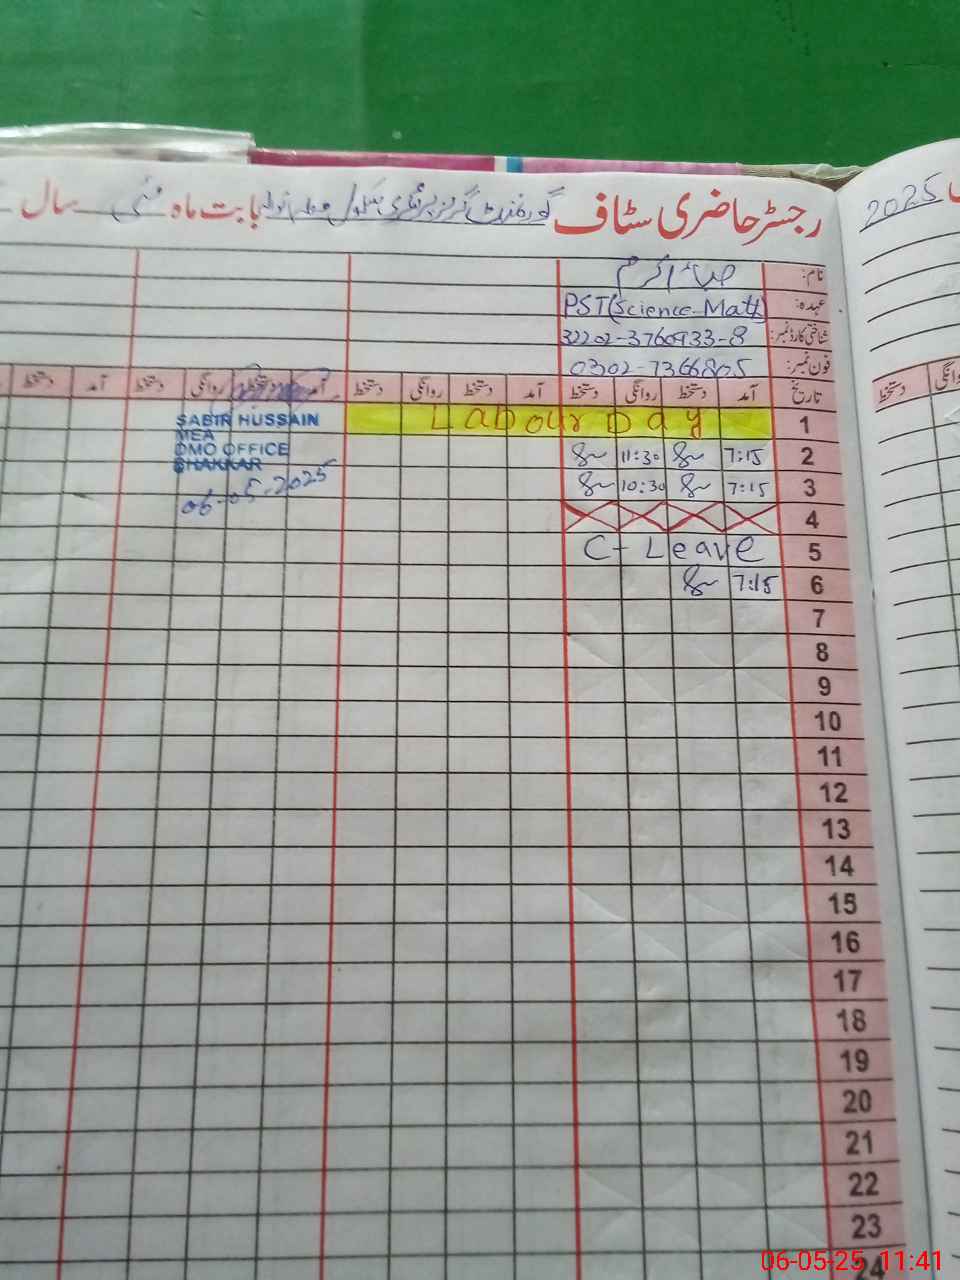 رجسٹر حاضری سٹاف گورنمنٹ گرلز پرائمری سکول بابت ماہ مئی سال
2025
نام:
عہدہ: PST(Science-Math)
شناختی کارڈ نمبر: 32202-3760933-8
فون نمبر: 0302-7366805
تاریخ آمد دستخط روانگی دستخط آمد دستخط روانگی دستخط آمد دستخط روانگی دستخط آمد دستخط
دستخط
1 Labour Day
2 7:15 11:30
3 7:15 10:30
4
5 C-Leave
6 7:15
7
8
9
10
11
12
13
14
15
16
17
18
19
20
21
22
23
24
SABIR HUSSAIN
MEA
DMO OFFICE
BHAKKAR
06-05-2025
06-05-25 11:41